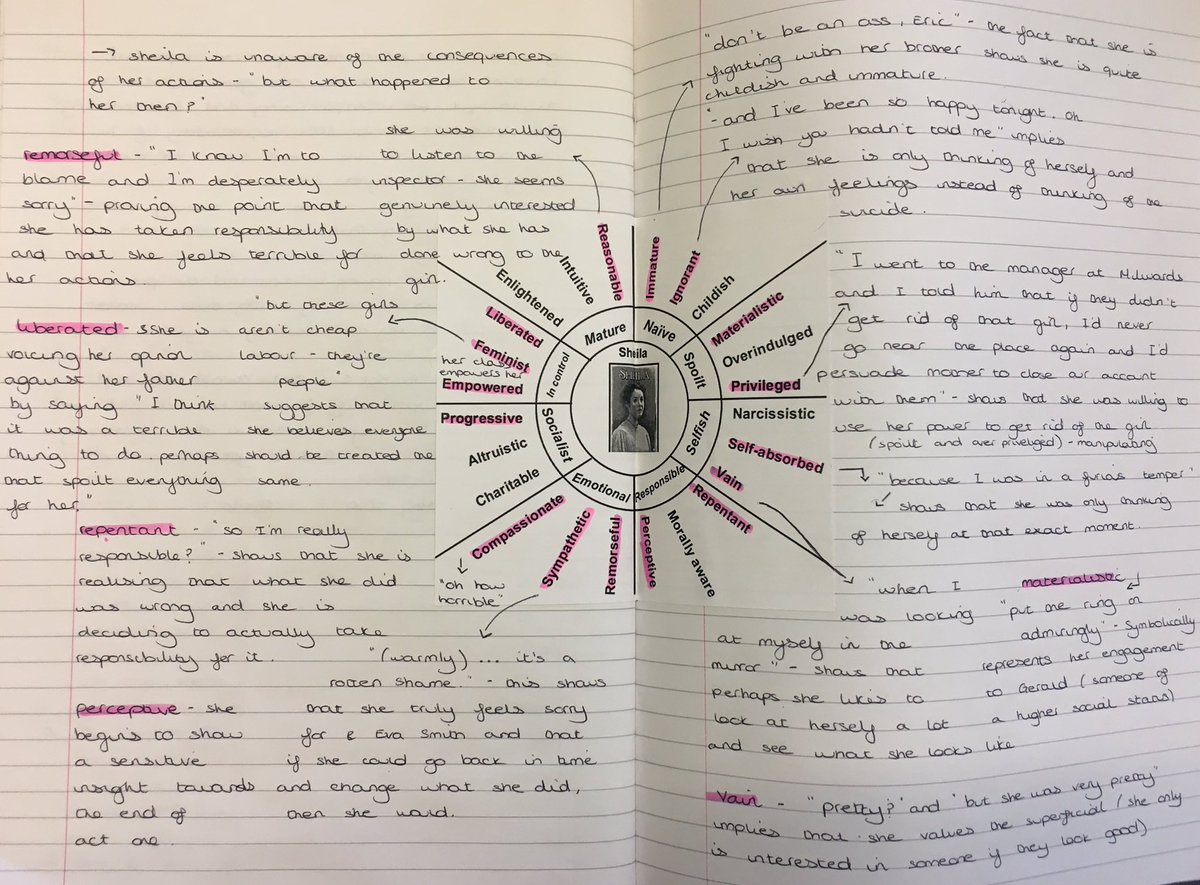 → sheila is unaware of the consequences
of her actions - "but what happened to
her then?"
remorseful - "I know I'm to
blame and I'm desperately
sorry" - proving the point that
she has taken responsibility
and that she feels terrible for
her actions.
she was willing
to listen to the
inspector - she seems
genuinely interested
by what she has
done wrong to the
girl.
liberated - she is
voicing her opinion
against her father
by saying "I think
it was a terrible
thing to do. perhaps
that spoilt everything
for her."
"but these girls
aren't cheap
labour - they're
people"
suggests that
she believes everyone
should be created the
same.
repentant - "so I'm really
responsible?" - shows that she is
realising that what she did
was wrong and she is
deciding to actually take
responsibility for it.
perceptive - she
begins to show
a sensitive
insight towards
the end of
act one.
"(warmly) ... it's a
rotten shame." - this shows
that she truly feels sorry
for Eva Smith and that
if she could go back in time
and change what she did,
then she would.
Sheila
SHEILA
Mature
Naïve
Spoilt
Selfish
Responsible
Emotional
Socialist
In control
Enlightened
Intuitive
Reasonable
Immature
Ignorant
Childish
Materialistic
Overindulged
Privileged
Narcissistic
Self-absorbed
Vain
Repentant
Morally aware
Perceptive
Remorseful
Sympathetic
Compassionate
Charitable
Altruistic
Progressive
Empowered
her class
empowers her
Feminist
Liberated
"oh how
horrible"
"don't be an ass, Eric" - the fact that she is
fighting with her brother shows she is quite
childish and immature.
"- and I've been so happy tonight. Oh
I wish you hadn't told me" implies
that she is only thinking of herself and
her own feelings instead of thinking of the
suicide.
"I went to the manager at Milwards
and I told him that if they didn't
get rid of that girl, I'd never
go near the place again and I'd
persuade mother to close our account
with them" - shows that she was willing to
use her power to get rid of the girl
(spoilt and over priveliged) - manipulating
"because I was in a furious temper"
shows that she was only thinking
of herself at that exact moment.
"when I
was looking
at myself in the
mirror" - shows that
perhaps she likes to
look at herself a lot
and see what she looks like
materialistic
"put the ring on
admiringly" - symbolically
represents her engagement
to Gerald (someone of
a higher social status)
Vain - "pretty?" and "but she was very pretty"
implies that she values the superficial (she only
is interested in someone if they look good)